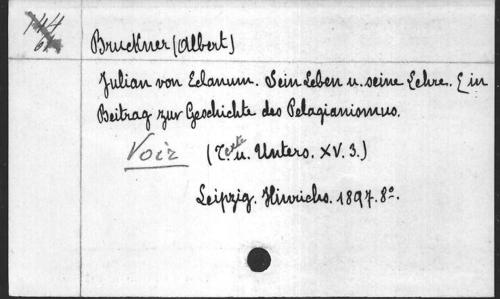 144
Bruckner (Albert)
Julian von Eclanum. Sein Leben u. seine Lehre. Ein
Beitrag zur Geschichte des Pelagianismus.
Voir (Texte u. Unters. XV. 3.)
Leipzig. Hinrichs. 1897. 8º.